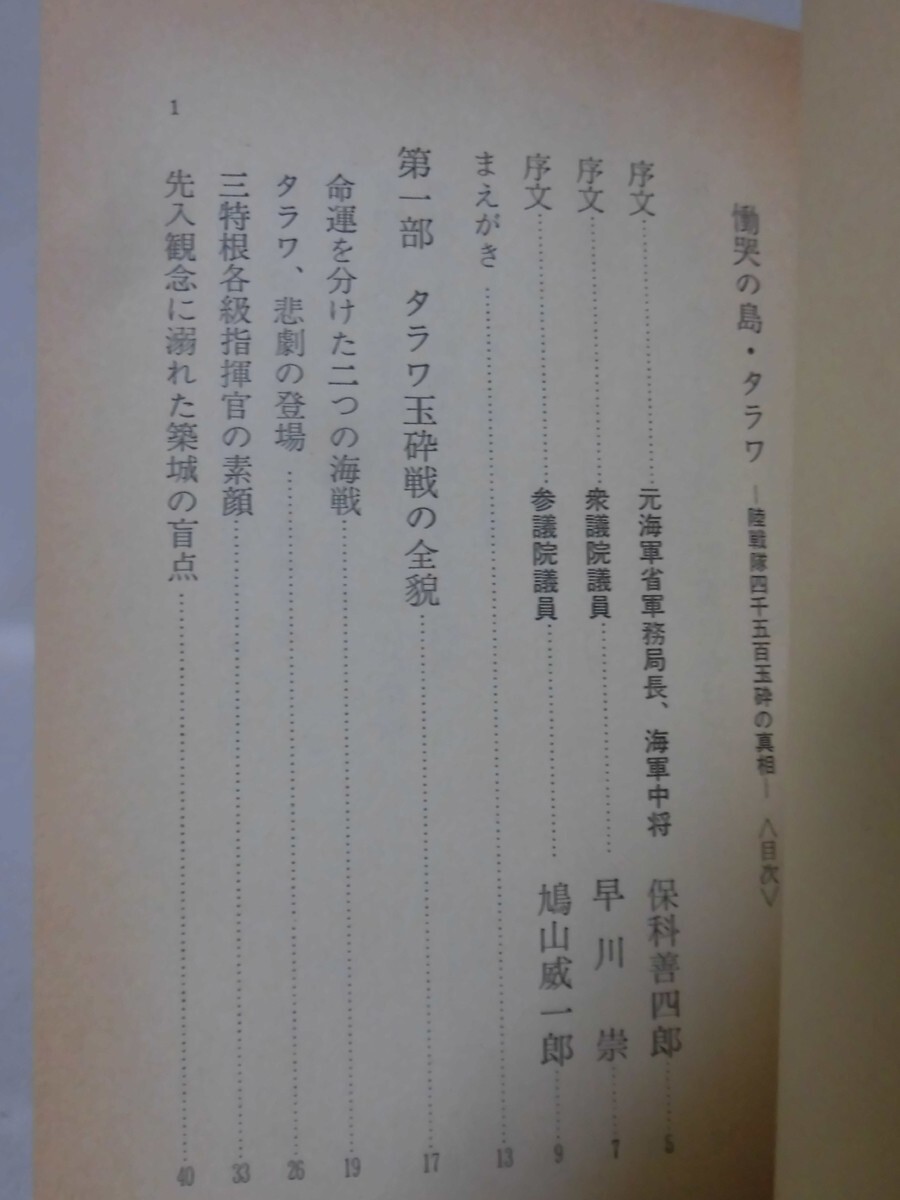 慟哭の島・タラワ ―陸戦隊四千五百玉砕の真相― 〈目次〉
序文……………元海軍省軍務局長、海軍中将 保科善四郎……5
序文……………衆議院議員……………早川 崇……7
序文……………参議院議員……………鳩山威一郎……9
まえがき……………13
第一部 タラワ玉砕戦の全貌……………17
命運を分けた二つの海戦……………19
タラワ、悲劇の登場……………26
三特根各級指揮官の素顔……………33
先入観念に溺れた築城の盲点……………40
1